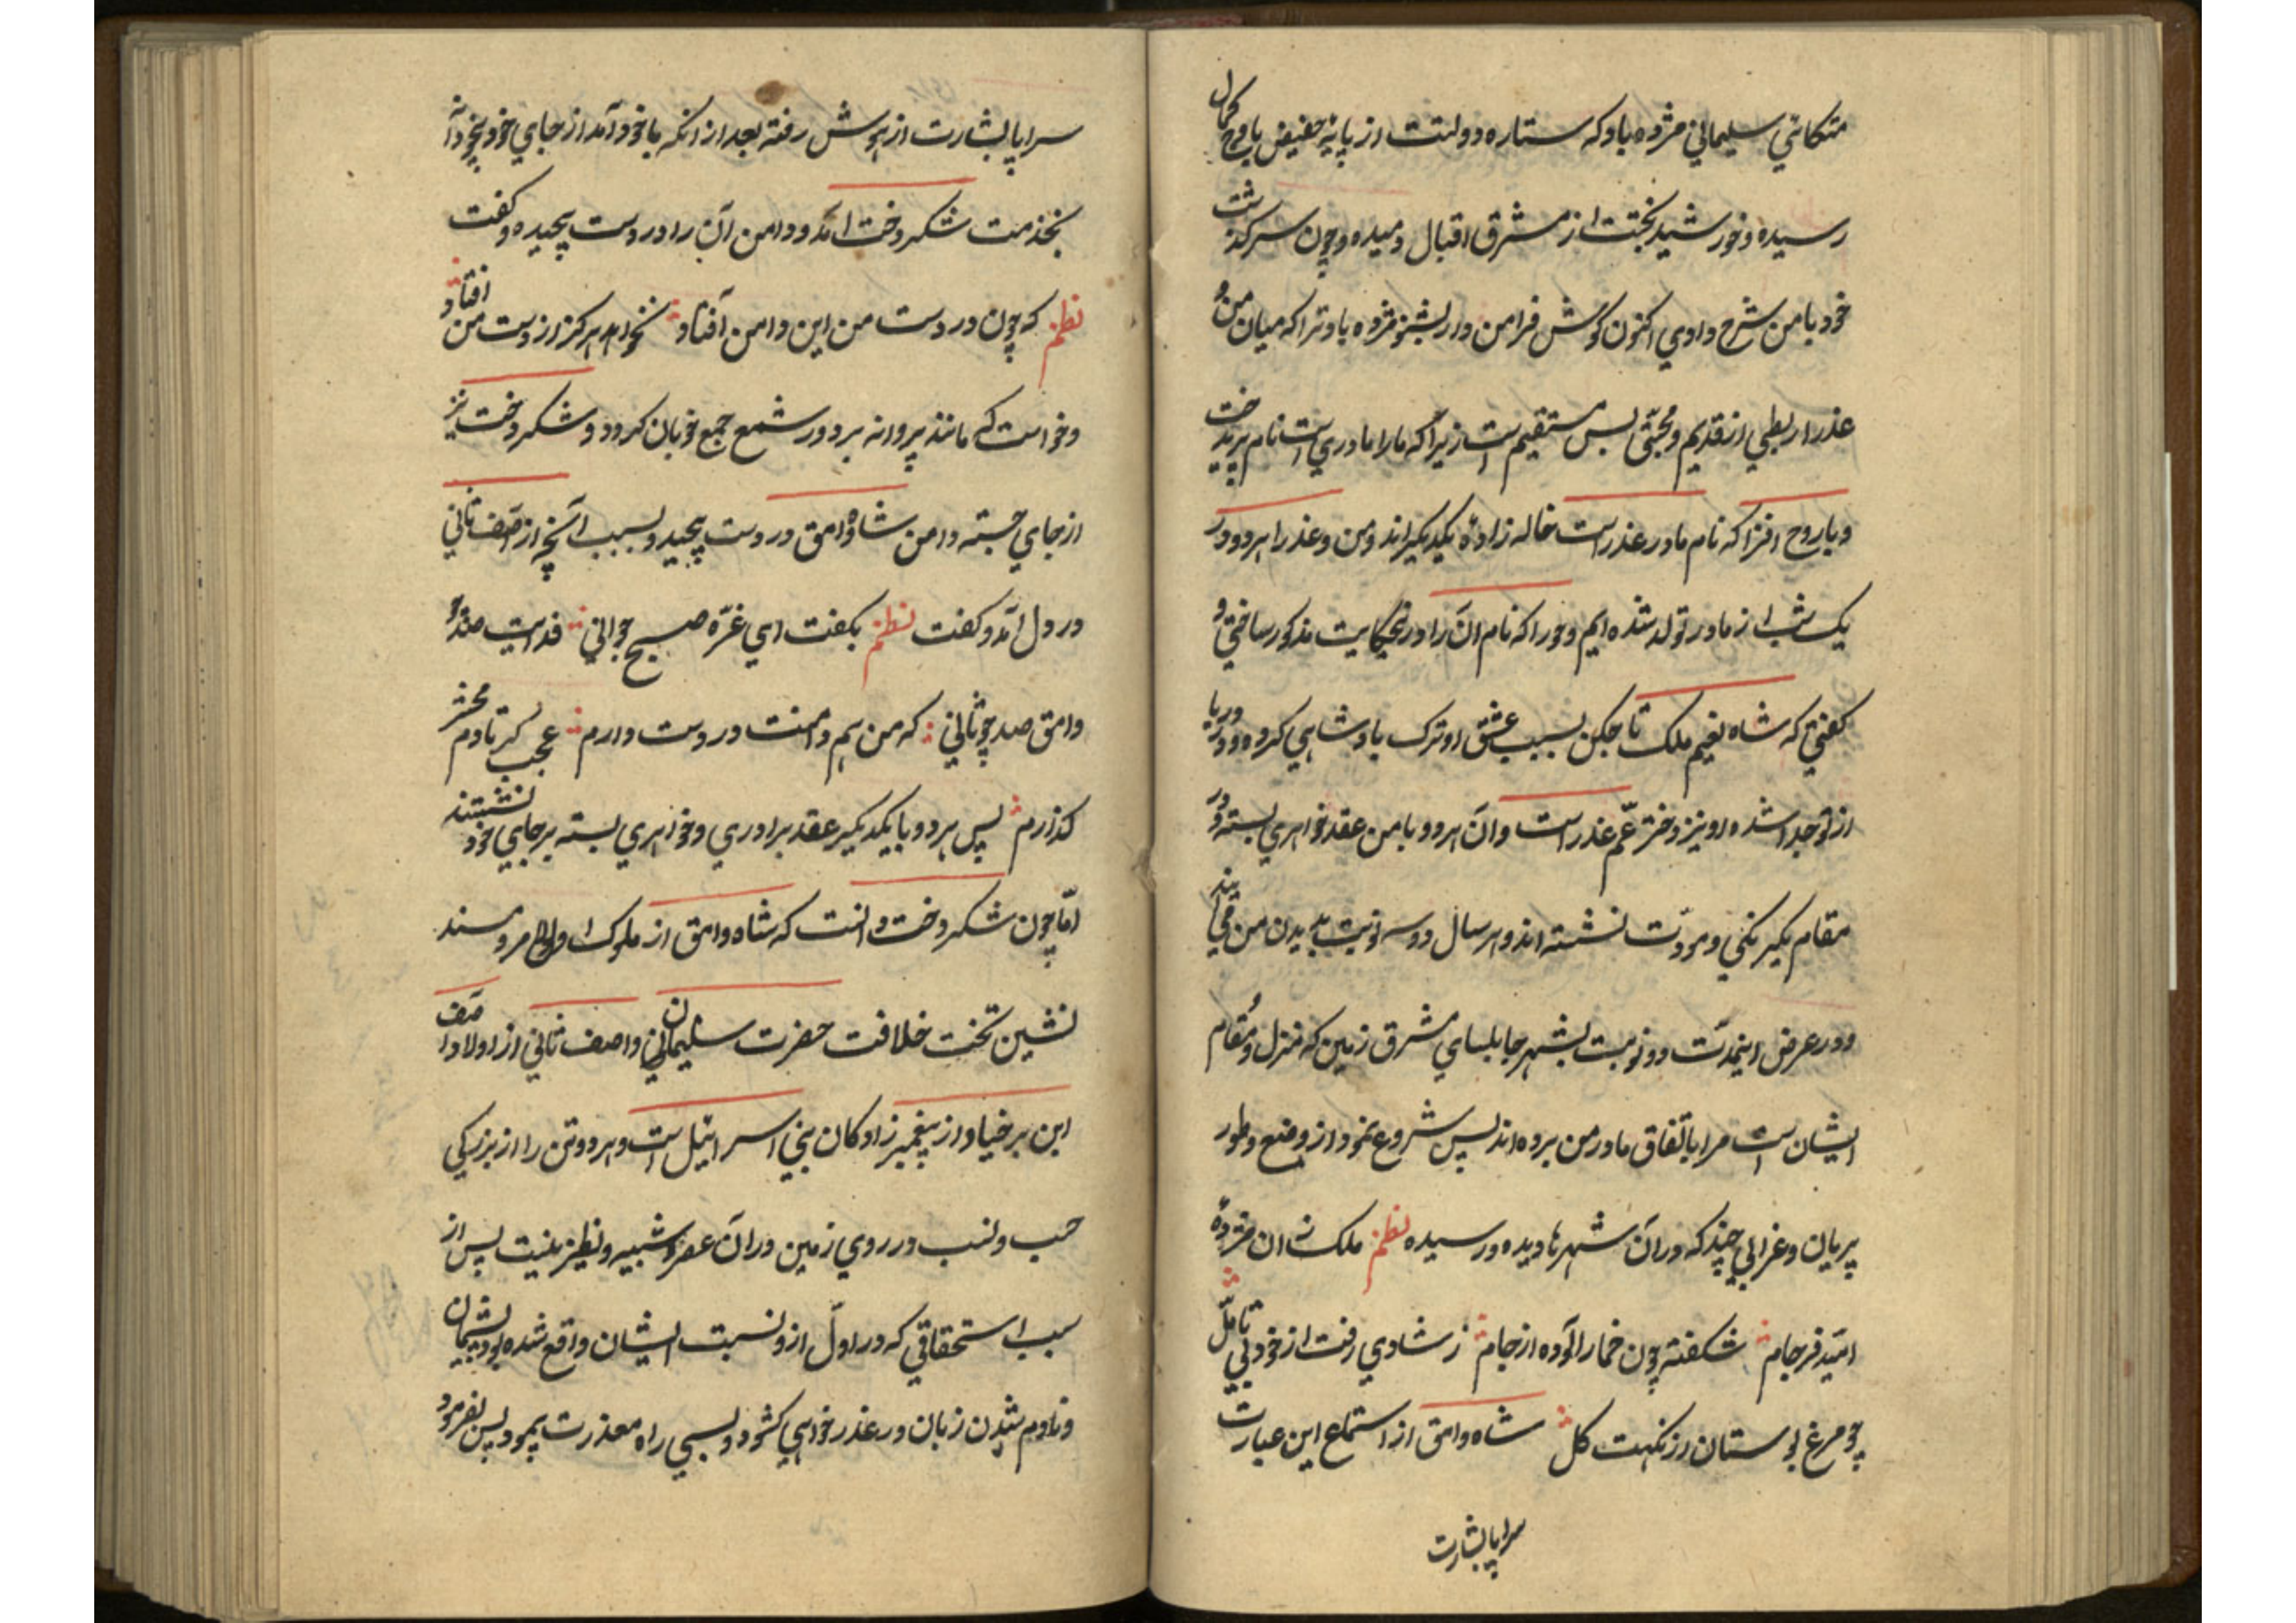 متکائی سلیمانی مژده باد که ستاره دولتت از پایهٔ حضیض باوج کمال
رسیده و خورشید بختت از مشرق اقبال دمیده و چون سرکذشت
خود با من شرح دادی اکنون کوش فرا من دار بشنو مژده باد ترا که میان من و
عذرا ربطی از قدیم و محبّتی بس مستقیم است زیرا که ما را مادری است نام پریدخت
و با روح افزا که نام مادر عذراست خاله زادهٔ یکدیکر اند و من و عذرا هر دو در
یک شب از مادر تولد شده ایم و حورا که نام آن را در حکایت مذکور ساختی و
کفتی که شاه نعیم ملک تاجکن بسبب عشق او ترک پادشاهی کرده و در دریا
از تو جدا شده او نیز دختر عمّ عذراست و آن هر دو با من عقد خواهری بسته و در
مقام یکرنکی و مودّت نشسته اند و هر سال دو سه نوبت بدیدن من می آیند
و در عرض اینمدّت دو نوبت بشهر جابلسای مشرق زمین که منزل و مُقام
ایشان است مرا باتّفاق مادر من برده اند پس شروع نمود از وضع و طور
پریان و غرایبی چند که در آن شهرها دیده و رسیده نظم ملک زان مژدهٔ
امیّد فرجام شکفته چون خمارآلوده از جام ز شادی رفت از خود بی تامّل
چو مرغ بوستان از نکهت کل شاه وامق از استماع این عبارت
سراپا بشارت
سراپا بشارت از هوش رفته بعد از انکه با خود آمد از جای خود بیخودانه
بخدمت شکردخت آمد و دامن آن را در دست پیچیده و کفت
نظم که چون در دست من این دامن افتاد نخواهد هرکز از دست من افتاد
و خواست که مانند پروانه بر دور شمع جمع خوبان کردد و شکردخت نیز
از جای جسته دامن شاه وامق در دست پیچید و بسبب آنچه از آصف ثانی
در دل آمد و کفت نظم بکفت ای غرّه صبح جوانی فدایت صد چو
وامق صد چو ثانی که من هم دامنت در دست دارم عجب کر تا دم محشر
کذارم پس هر دو با یکدیکر عقد برادری و خواهری بسته بر جای خود نشستند
امّا چون شکردخت دانست که شاه وامق از ملوک و مسند
نشین تخت خلافت حضرت سلیمان و اصف ثانی از اولاد آصف
ابن برخیا و از پیغمبرزادکان بنی اسرائیل است و هر دو تن را از بزرکی
حسب و نسب در روی زمین در آن عصر شبیه و نظیر نیست پس از
سبب استحقاقی که در اوّل ازو نسبت ایشان واقع شده بود پشیمان
و نادم شدن زبان در عذرخواهی کشود و بسی راه معذرت پیمود پس بفرمود